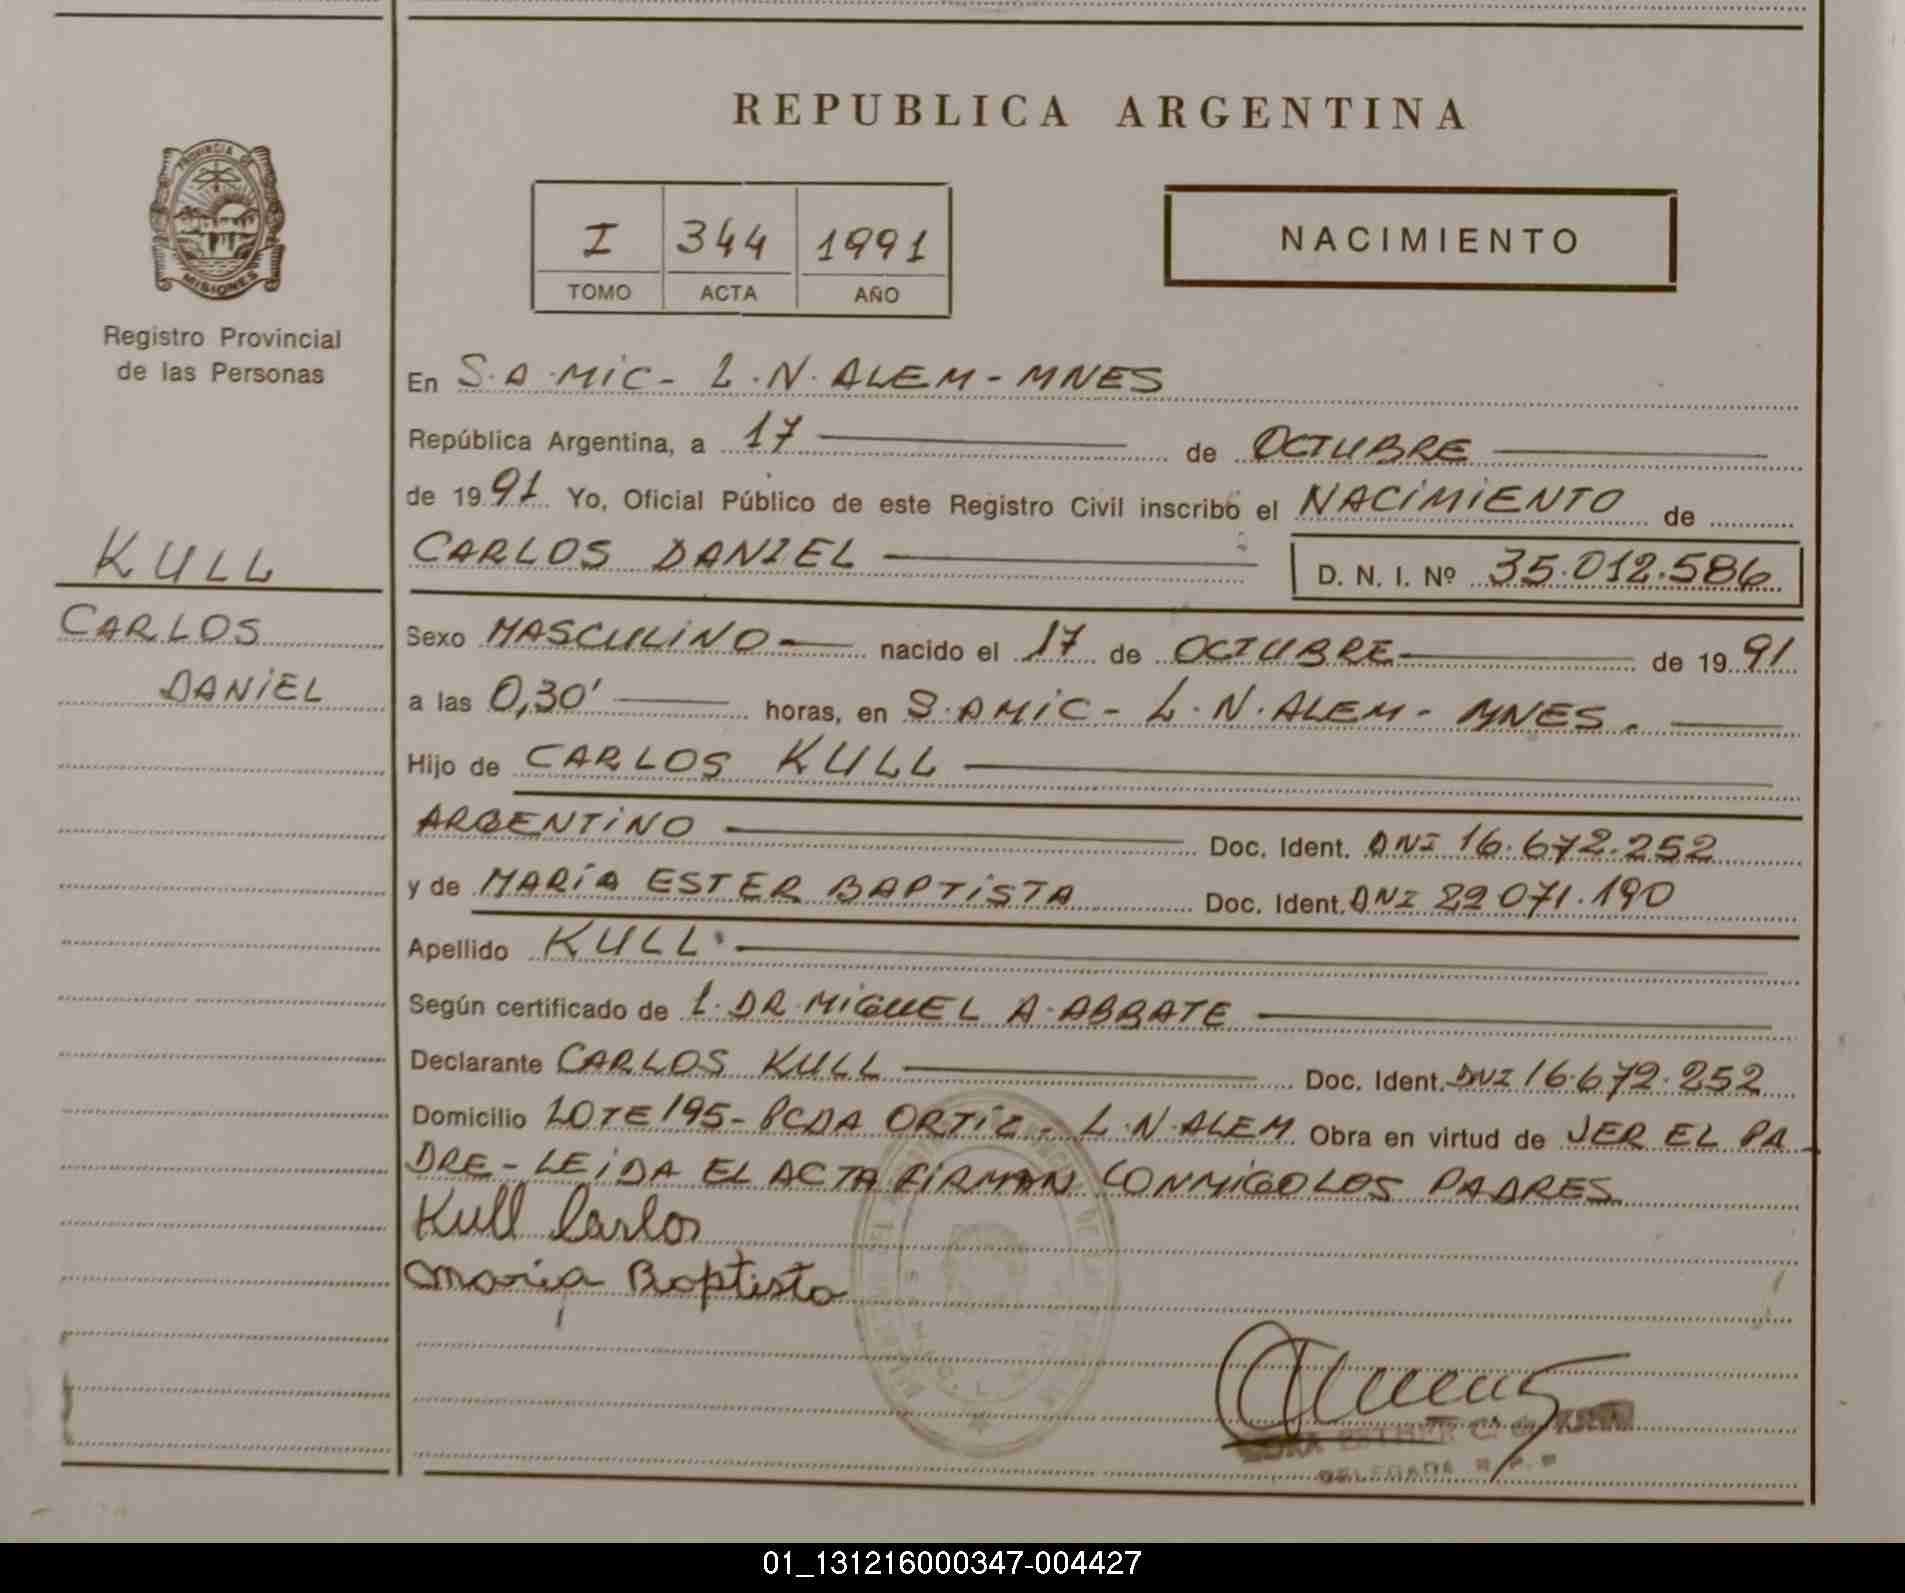 REPUBLICA ARGENTINA
PROVINCIA DE
MISIONES
Registro Provincial
de las Personas
I 344 1991
TOMO ACTA AÑO
NACIMIENTO
En S.A.MIC- L.N.ALEM-MNES
República Argentina, a 17 de OCTUBRE
de 1991 Yo, Oficial Público de este Registro Civil inscribo el NACIMIENTO de
KULL
CARLOS DANIEL D. N. I. Nº 35.012.586
CARLOS
DANIEL
Sexo MASCULINO nacido el 17 de OCTUBRE de 1991
a las 0,30' horas, en S.AMIC- L.N.ALEM- MNES.
Hijo de CARLOS KULL
ARGENTINO Doc. Ident. DNI 16.672.252
y de MARÍA ESTER BAPTISTA Doc. Ident. DNI 22 071.190
Apellido KULL
Según certificado de L. DR. MIGUEL A. ABBATE
Declarante CARLOS KULL Doc. Ident. DNI 16.672.252
Domicilio LOTE 195- PCDA ORTIZ- L.N.ALEM Obra en virtud de SER EL PA-
DRE-LEIDA EL ACTA FIRMAN CONMIGO LOS PADRES
Kull Carlos
Maria Baptista
DELEGADA R. P. P
01_131216000347-004427